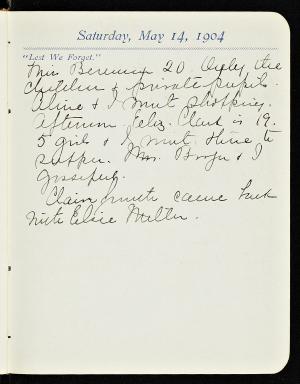 Saturday, May 14, 1904
"Lest We Forget."
Miss 20. Only the
children & private pupils.
Aline & I went shopping.
Afternoon Feliz. Clark is 19.
5 girls & I went there to
supper. Mrs. & I
gossiped.
Claire Smith came back
with Elsie